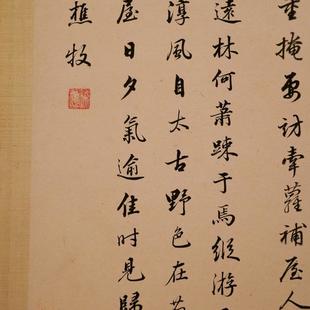 重掩更訪牽蘿補屋人
遠林何蕭踈于焉縱游
淳風自太古野色在
屋日夕氣逾佳時見歸
樵牧